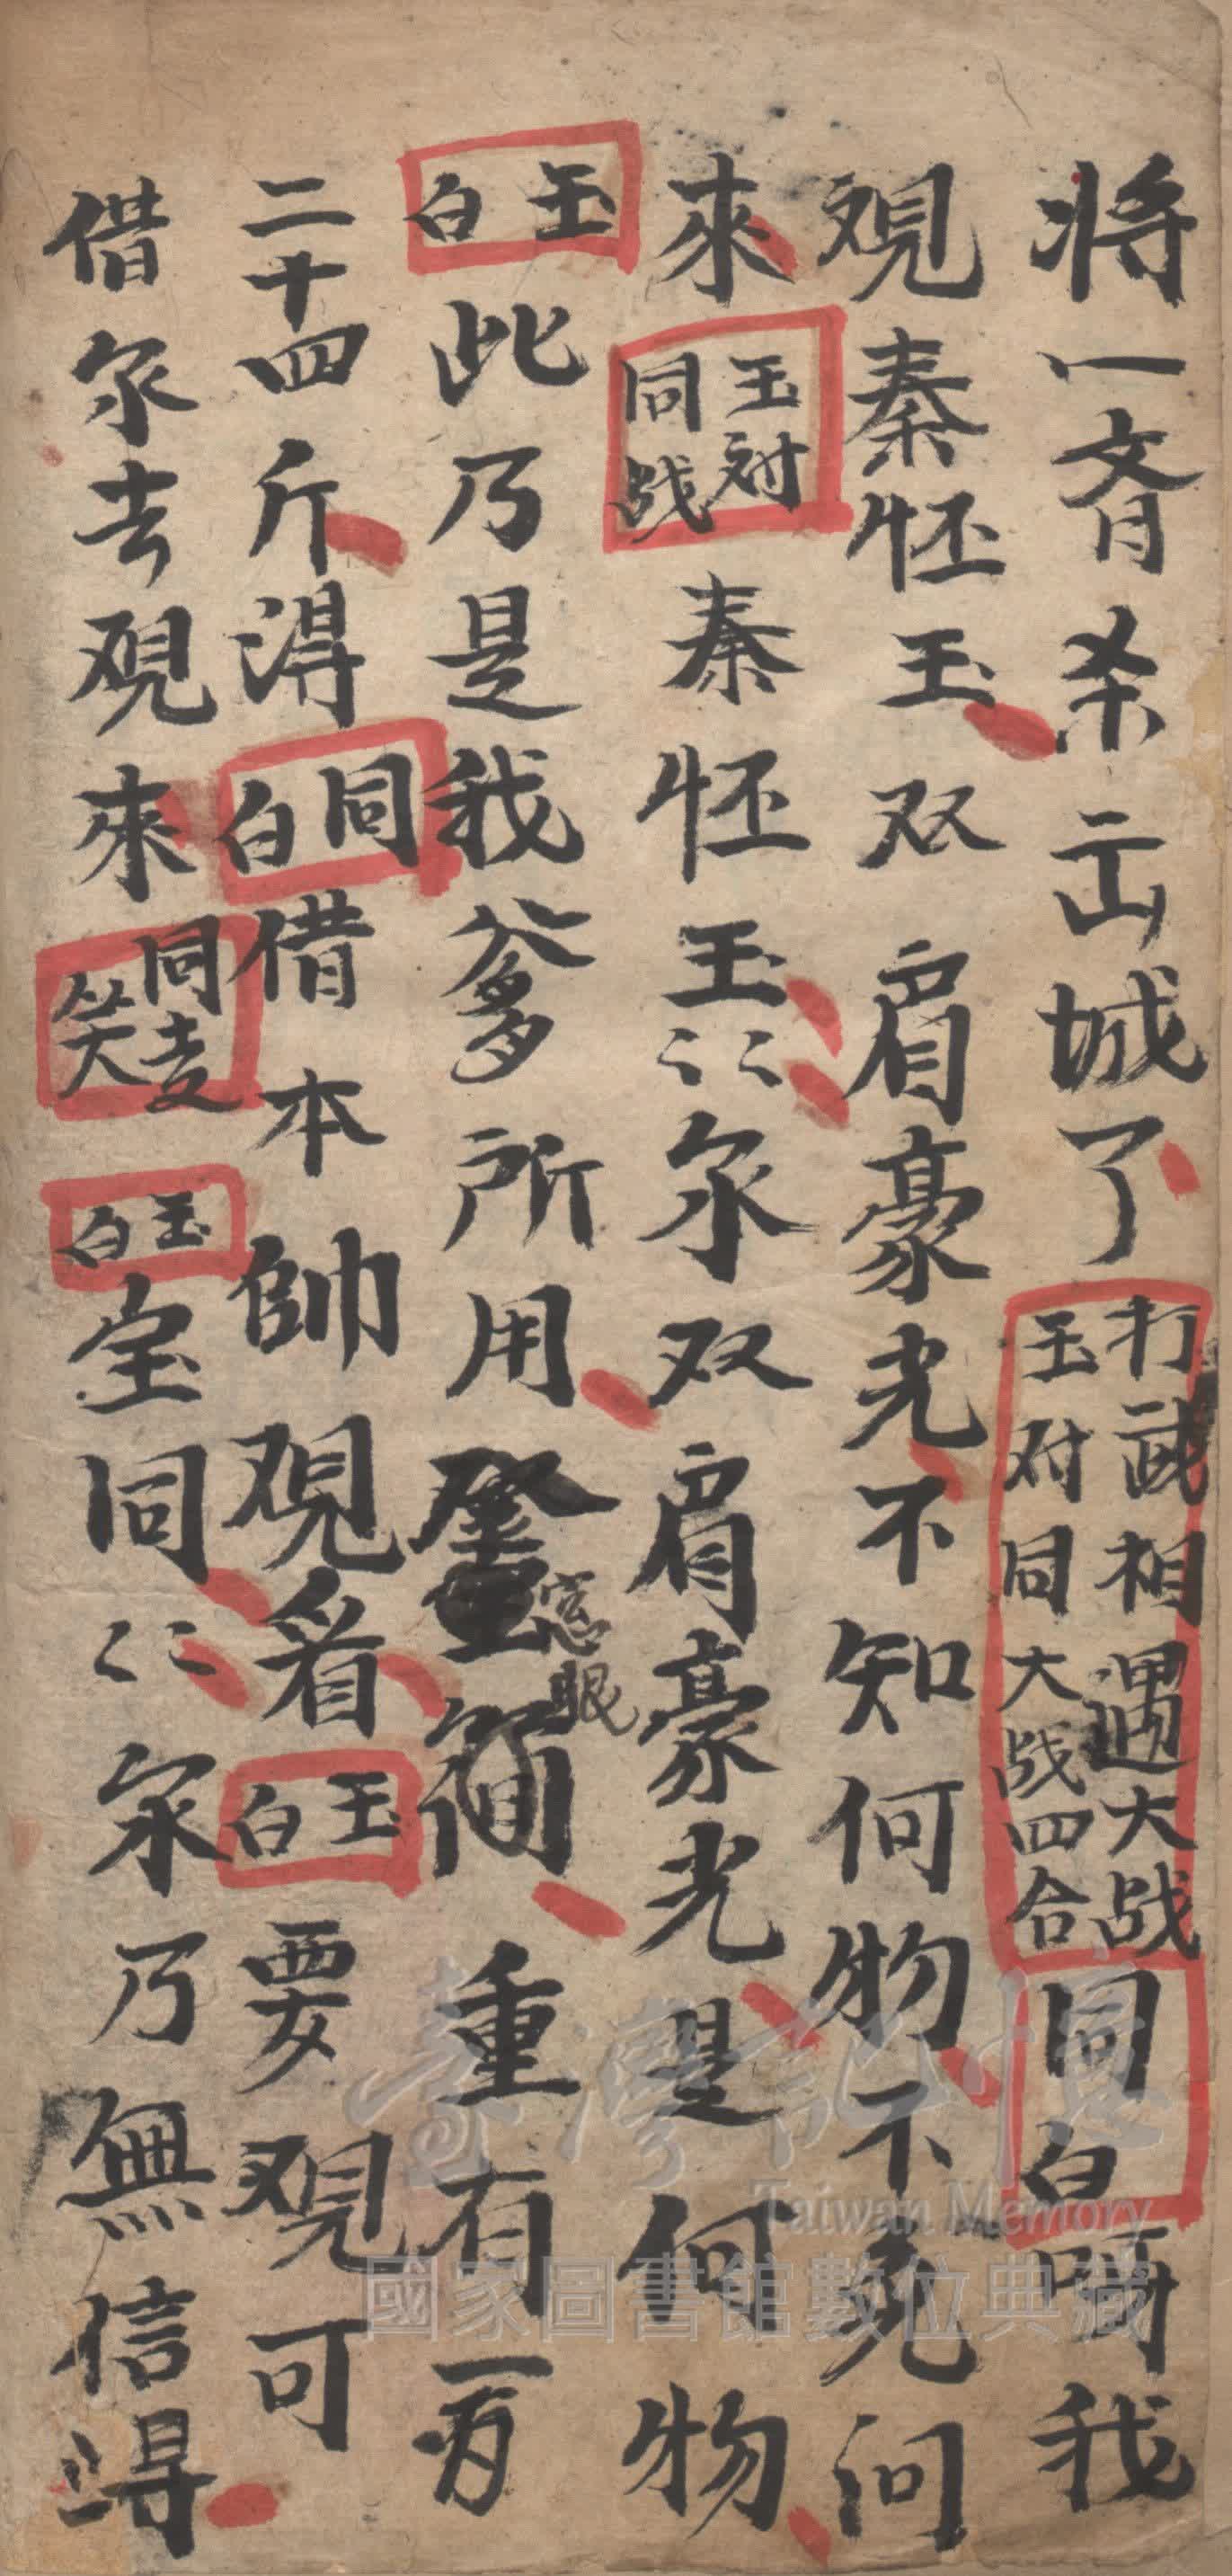 将一齐杀出城了 打武相遇大战 玉对同大战四合 同白 啊我
观秦怀玉双肩豪光不知何物不免问
來 玉对同战 秦怀玉〻〻尔双肩豪光是何物
玉白 此乃是我爹所用 簡 重有一百
二十四斤淂 同白 借本帥观看 玉白 要观可
借尔去观來 同走笑 玉白 宝同〻〻尔乃無信得
窓眼
臺灣記憶
Taiwan Memory
國家圖書館數位典藏